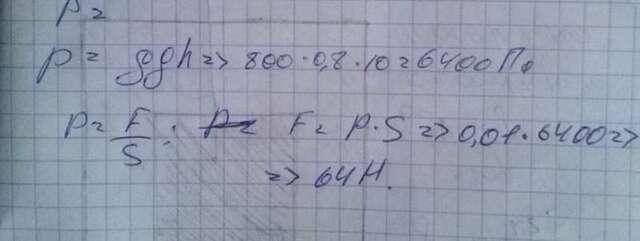 p =
p = ρgh => 800 · 0,8 · 10 = 6400 Па
p = F/S ; F = p · S => 0,01 · 6400 =>
=> 64 Н.